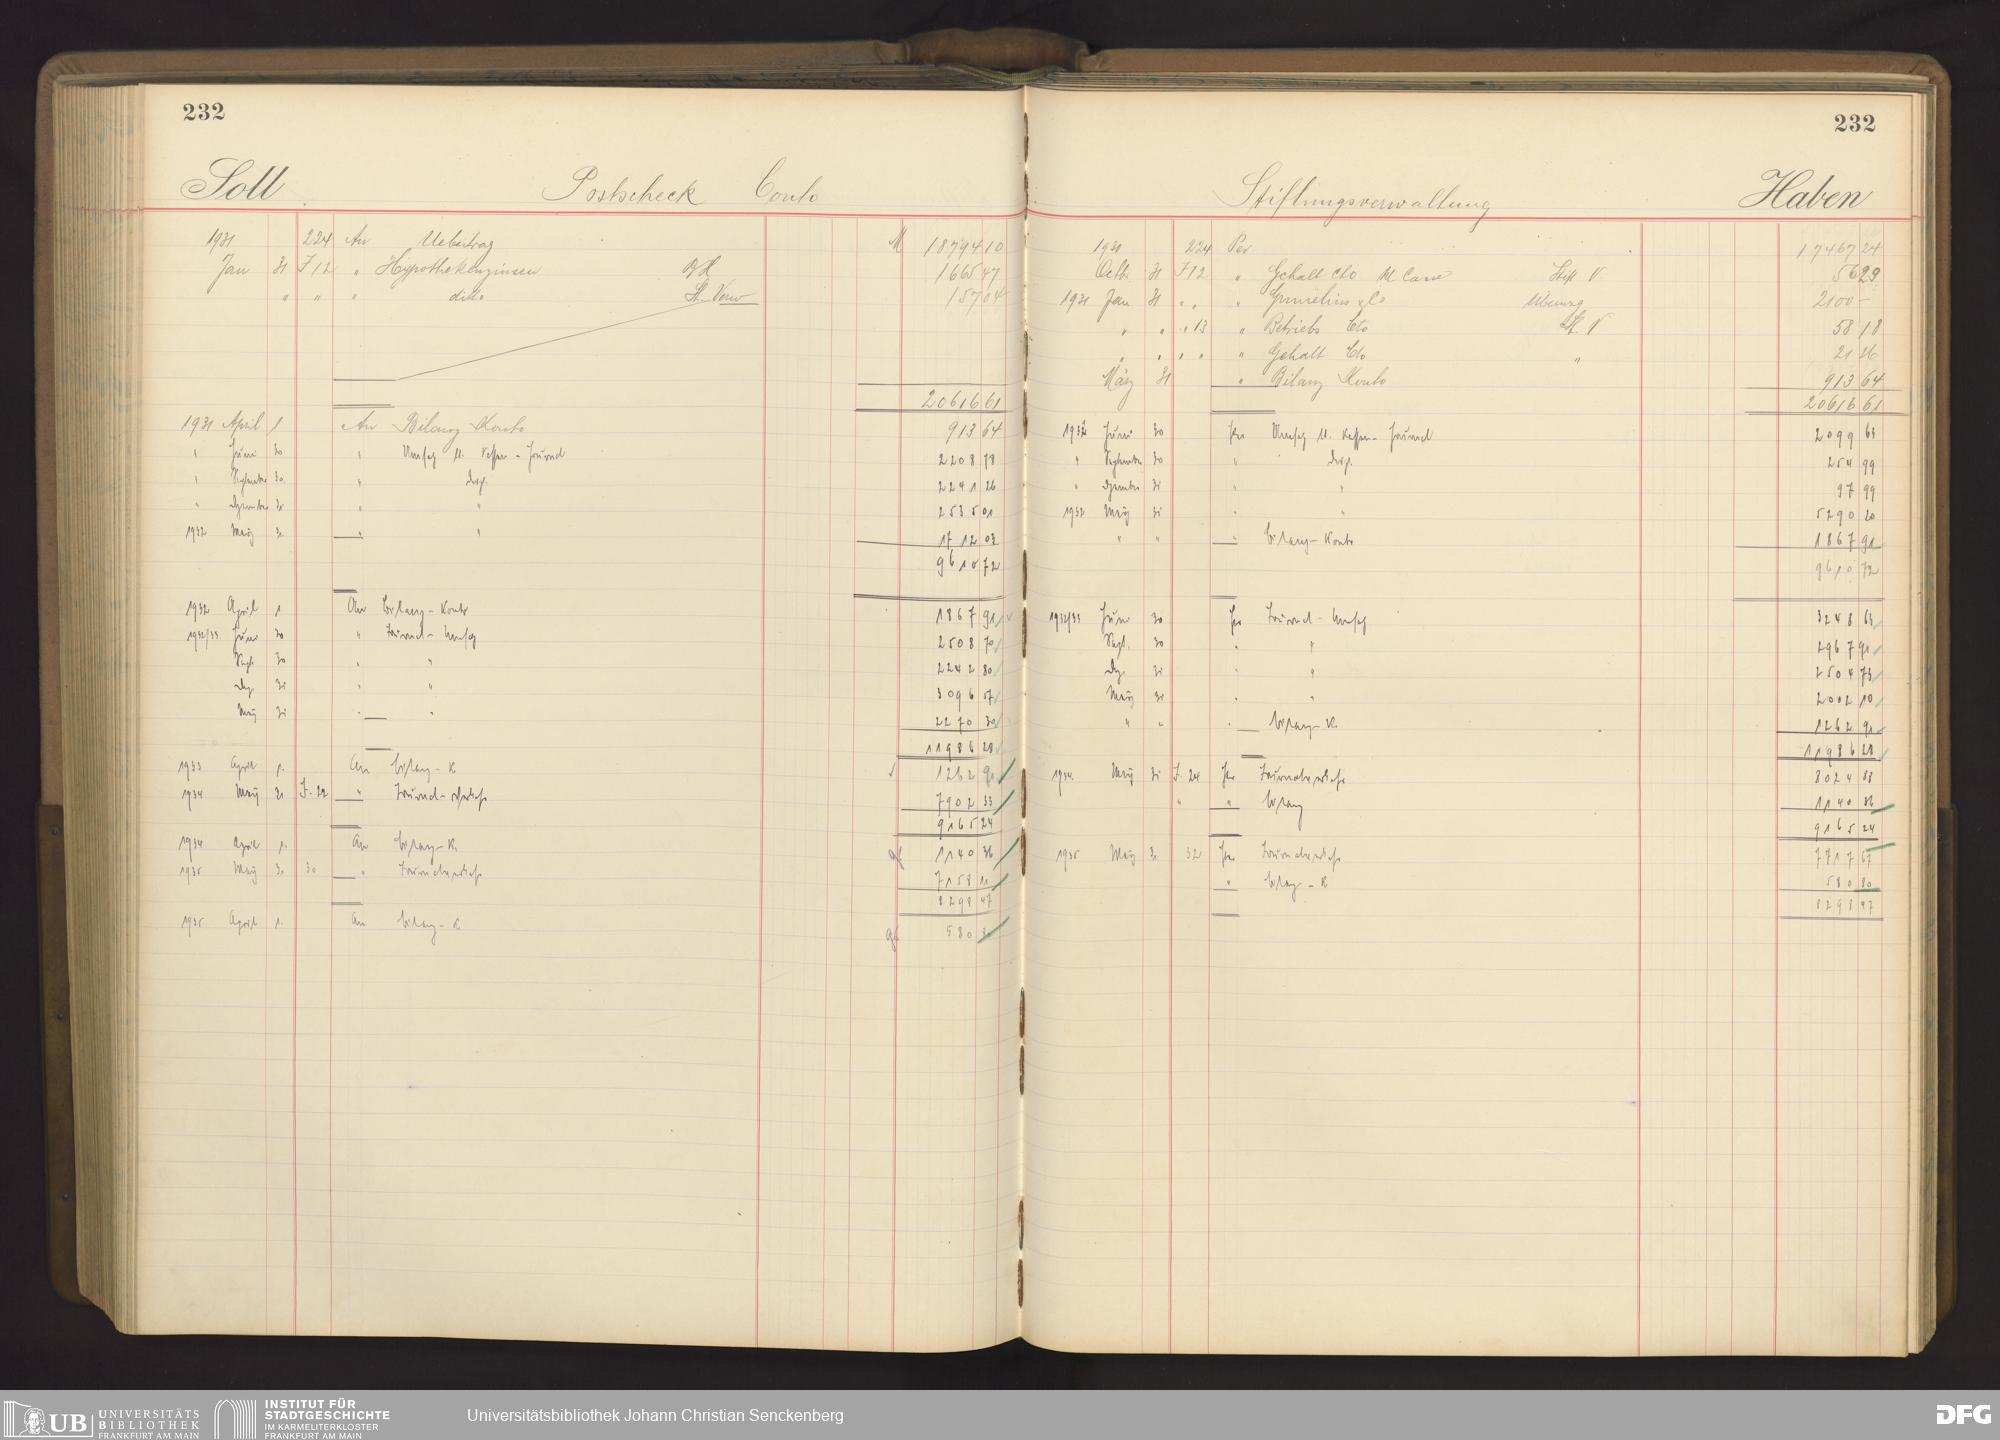 232
Soll Postscheck Conto
1931 224 An Uebertrag M 18794 10
Jan 31 J 12 " Hypothekenzinsen 1665 47
" " " dito St. Verw 157 04
20616 61
1931 April 1 An Bilanz Konto 913 64
" Juni 30 " Umsatz Kassen-Journal 2208 78
" September 30 " desgl. 2241 26
" Dezember 31 " " 2535 01
1932 März 31 " " 1712 03
9610 72
1932 April 1 An Bilanz-Konto 1867 91
1932/33 Juni 30 " Journal-Umsatz 2508 70
Sept. 30 " " 2242 80
Dez. 31 " " 3096 57
März 31 " " 2270 30
11986 28
1933 April 1. An Bilanz-K 1262 91
1934 März 31 J. 22 " Journal- 7902 33
9165 24
1934 April 1. An Bilanz-K. 1140 36
1935 März 31 30 " 7158 11
8298 47
1935 April 1. An Bilanz-K 580 80
232
Stiftungsverwaltung Haben
1931 224 Per 17467 24
31 J 12 " Gehalt Cto Stift V 56 29
1931 Jan 31 " " " 2100 –
" " " 13 " Betriebs Cto St. V 58 18
" " " " " Gehalt Cto " 21 26
März 31 " Bilanz Konto 913 64
20616 61
1931 Juni 30 Per Umsatz Kassen-Journal 2099 63
" September 30 " desgl. 254 99
" Dezember 31 " " 97 99
1932 März 31 " " 5290 20
" " " Bilanz-Konto 1867 91
9610 72
1932/33 Juni 30 Per Journal-Umsatz 3248 63
Sept. 30 " " 2967 91
Dez 31 " " 2504 73
März 31 " " 2002 10
" " " Bilanz-K. 1262 91
11986 28
1934 März 31 J. 24 Per 8024 88
" " Bilanz 1140 36
9165 24
1935 März 31 32 Per 7717 67
" Bilanz-K 580 80
8298 47
UB UNIVERSITÄTS
BIBLIOTHEK
FRANKFURT AM MAIN
INSTITUT FÜR
STADTGESCHICHTE
IM KARMELITERKLOSTER
FRANKFURT AM MAIN
Universitätsbibliothek Johann Christian Senckenberg
DFG